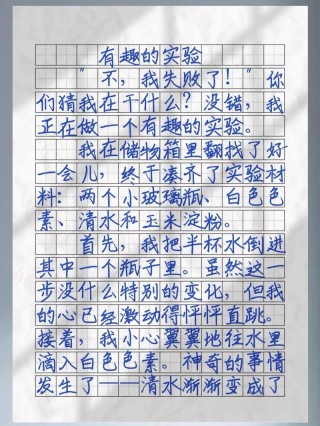 有趣的实验
"不，我失败了！"你
们猜我在干什么？没错，我
正在做一个有趣的实验。
我在储物箱里翻找了好
一会儿，终于凑齐了实验材
料：两个小玻璃瓶、白色色
素、清水和玉米淀粉。
首先，我把半杯水倒进
其中一个瓶子里。虽然这一
步没什么特别的变化，但我
的心已经激动得怦怦直跳。
接着，我小心翼翼地往水里
滴入白色色素。神奇的事情
发生了——清水渐渐变成了